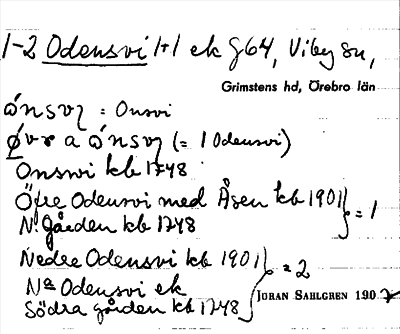 1-2 Odensvi 1+1 ek J64, Viby sn,
Grimstens hd, Örebro län
= Onsvi
(= 1 Odensvi)
Onsvi kb 1748
Öfre Odensvi med Åsen kb 1901
N. gården kb 1748 } = 1
Nedre Odensvi kb 1901
Na Odensvi ek } = 2
Södra gården kb 1748
JÖRAN SAHLGREN 190